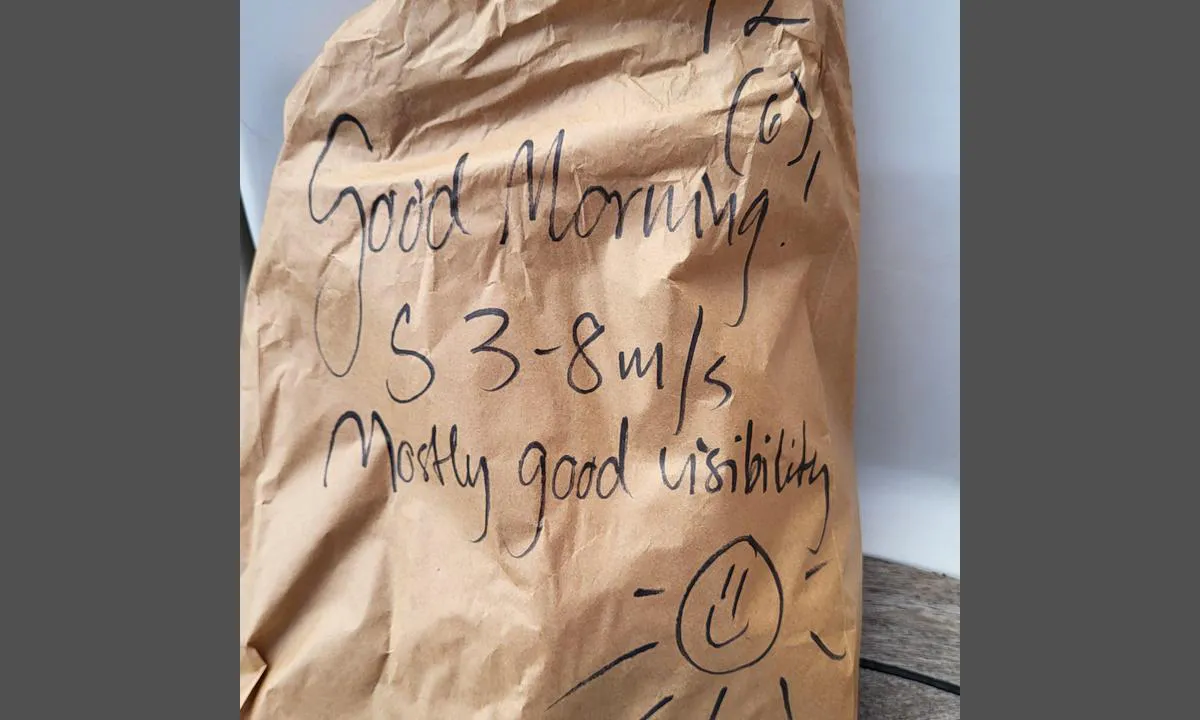 12
(6),
Good Morning.
S 3-8m/s
Mostly good visibility